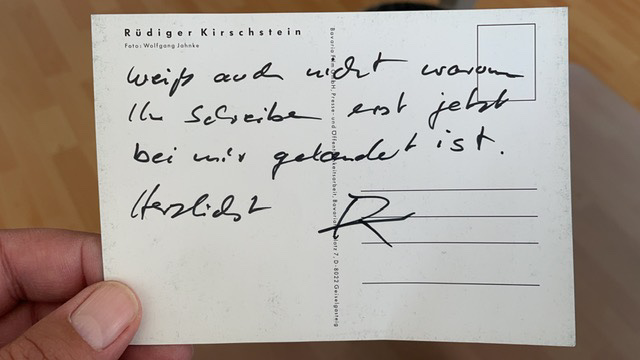 Rüdiger Kirschstein
Foto: Wolfgang Jahnke
weiß auch nicht warum
Ihr Schreiben erst jetzt
bei mir gelandet ist.
Herzlichst R
Bavaria Film GmbH, Presse- und Öffentlichkeitsarbeit, Bavariafilmplatz 7, D-8022 Geiselgasteig